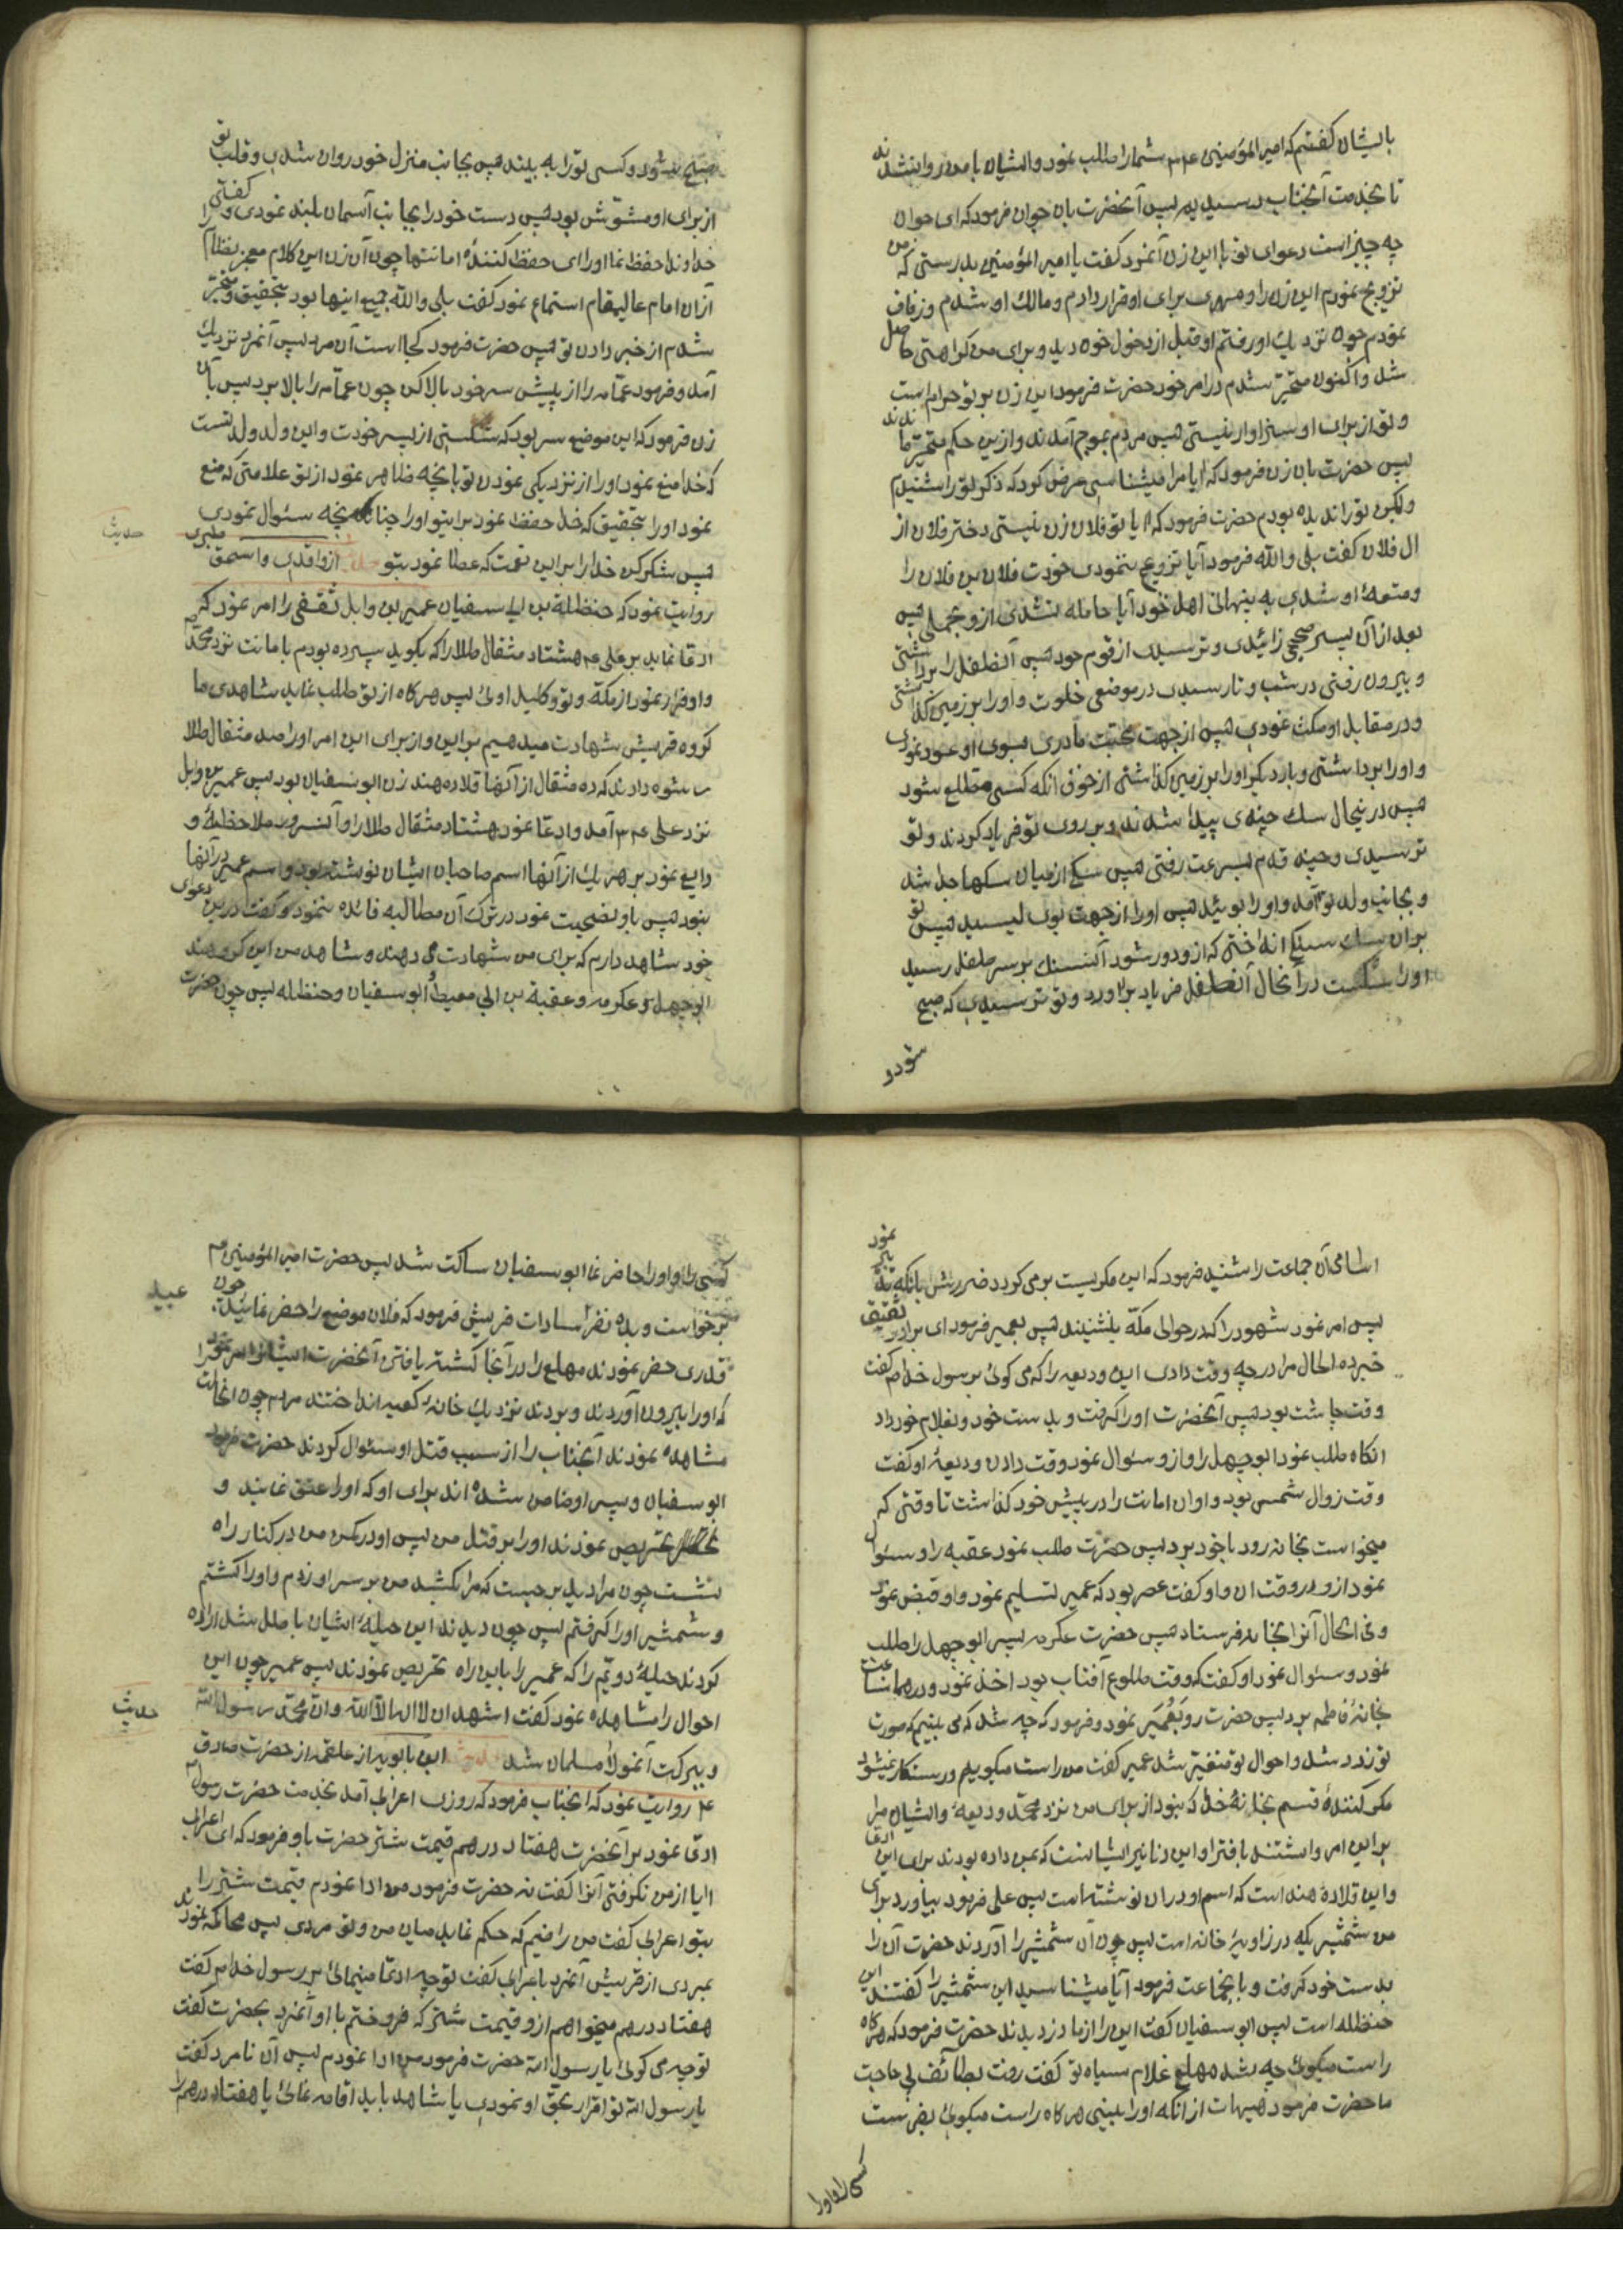 بایشان گفتم که امیرالمؤمنین ع م شما را طلب نمود و ایشان با من روانه شدند
تا بخدمت آنجناب رسیدیم پس آنحضرت بان جوان فرمود که ای جوان
چه چیز است دعوای تو با این زن آنمرد گفت یا امیر المؤمنین بدرستی که من
تزویج نمودم این زن را و مهری برای او قرار دادم و مالک او شدم و زفاف
نمودم چون نزدیک او رفتم او قبل از دخول خون دید و برای من کراهتی حاصل
شد و اکنون متحیر شدم در امر خود حضرت فرمود این زن بر تو حرام است
و تو از برای او سزاوار نیستی پس مردم بموج آمدند و ازین حکم متحیر ماندند
پس حضرت بان زن فرمود که ایا مرا میشناسی عرض کرد که ذکر تو را شنیدم
ولکن تو را ندیده بودم حضرت فرمود که ایا تو فلان زن نیستی دختر فلان از
ال فلان گفت بلی والله فرمود آیا تزویج ننمودی خودت فلان بن فلان را
و متعهٔ او شدی به پنهانی اهل خود آیا حامله نشدی ازو بحملی پس
بعد از آن پسر صحیحی زائیدی و ترسیدی از قوم خود پس آنطفل را برداشتی
و بیرون رفتی در شب و تا رسیدی در موضعی خلوت و او را بر زمین گذاشتی
و در مقابل او مکث نمودی پس از جهت محبت مادری بسوی او عود نمودی
و او را برداشتی و بار دیگر او را بر زمین گذاشتی از خوف انکه کسی مطلع شود
پس در ینحال سک چندی پیدا شدند و بر روی تو فریاد کردند و تو
ترسیدی و چند قدم بسرعت رفتی پس سکی از میان سکها جدا شد
و بجانب ولد تو آمد و او را بوئید پس او را از جهت بوی لیسید پس تو
بر ان سک سنگی انداختی که ازو دور شود آنسنک بر سر طفل رسید
او را شکست در آنحال آنطفل فریاد برآورد و تو ترسیدی که صبح
شود و
صبح شود و کسی تو را به بیند پس بجانب منزل خود روان شدی و قلب تو
از برای او مشوّش بود پس دست خود را بجانب آسمان بلند نمودی و گفتی
خداوندا حفظ نما او را ای حفظ کنندهٔ امانتها چون آن زن این کلام معجز نظام را
از ان امام عالیمقام استماع نمود گفت بلی والله جمیع اینها بود بتحقیق و متحیّر
شدم از خبر دادن تو پس حضرت فرمود کجا است آن مرد پس آنمرد نزدیک
آمد و فرمود عمّامه را از پیش سر خود بالا کن چون عمّامه را بالا برد پس بآن
زن فرمود که این موضع سر بود که شکستی از پسر خودت و این ولد ولد تست
که خدا منع نمود او را از نزدیکی نمودن تو بانچه ظاهر نمود از تو علامتی که منع
نمود او را بتحقیق که خدا حفظ نمود برایتو او را چنانچه سئوال نمودی
پس شکر کن خدا را بر این نعمت که عطا نمود بتو حدیث از واقدی و اسحق طبری
حدیث
روایت نمود که حنظلة بن ابی سفیان عمیر بن وابل ثقفی را امر نمود که
ادعا نماید بر علی ع م هشتاد مثقال طلا را که بگوید سپرده بودم بامانت نزد محمّد
و او فرار نمود از مکّة و تو وکیل اوئی پس هر کاه از تو طلب نماید شاهدی ما
کروه قریش شهادت میدهیم بر این و از برای این امر او را صد مثقال طلا
رشوه دادند که ده مثقال از آنها قلاده هند زن ابو سفیان بود پس عمیر بن وابل
نزد علی ع م آمد و ادعا نمود هشتاد مثقال طلا را و آنسرور ملاحظهٔ و
دایع نمود بر هر یک از آنها اسم صاحبان ایشان نوشته بود و اسم عمیر در آنها
نبود پس باو نصیحت نمود در ترک آن مطالبه فائده ننمود و گفت درین دعوی
خود شاهد دارم که برای من شهادت می دهند و شاهد من این گروهند
ابو جهل و عکرمه و عقبة بن ابی معیط و ابو سفیان و حنظله پس چون حضرت
اسامی آن جماعت را شنید فرمود که این مکریست برمی کردد ضررش بانکه تدبیر نمود
پس امر نمود شهود را که در حوالی مکّه بنشینند پس بعمیر فرمود ای برادر ثقیفی
خبرده الحال مرا در چه وقت دادی این ودیعه را که می کوئی بر رسول خدا ص م گفت
وقت چاشت بود پس آنحضرت او را گرفت و بدست خود و بغلام خود داد
انکاه طلب نمود ابو جهل را و ازو سئوال نمود وقت دادن ودیعهٔ او گفت
وقت زوال شمس بود و او ان امانت را در پیش خود گذاشت تا وقتی که
میخواست بخانه رود با خود برد پس حضرت طلب نمود عقبه را و سئوال
نمود ازو در وقت ان و او گفت عصر بود که عمیر تسلیم نمود و او قبض نمود
و فی الحال آنرا بخانه فرستاد پس حضرت عکرمه پسر ابو جهل را طلب
نمود و سئوال نمود او گفت که وقت طلوع آفتاب بود اخذ نمود و در همانساعت
بخانهٔ فاطمه برد پس حضرت رو بعُمَیر نمود و فرمود که چه شد که می بینیم که صورت
تو زرد شد و احوال تو متغیّر شد عمیر گفت من راست میکویم و رستکار نمیشود
مکر کنندهٔ قسم بخانهٔ خدا که نبود از برای من نزد محمّد ودیعهٔ و ایشان مرا
بر این امر واداشتند بافترا و این دنانیر ایشانست که بمن داده بودند برای این ادعا
و این قلادهٔ هند است که اسم او در ان نوشته است پس علی فرمود بیاورد برای
من شمشیریکه در زاویهٔ خانه است پس چون آن شمشیر را آوردند حضرت آن را
بدست خود گرفت و بانجماعت فرمود آیا میشناسید این شمشیر را گفتند این
حنظله است پس ابو سفیان گفت این را از ما دزدیدند حضرت فرمود که هر کاه
راست میکوئی چه شد مهلع غلام سیاه تو گفت رفت بطائف پی حاجت
ما حضرت فرمود هیهات از انکه او را ببینی هر کاه راست میکوئی بفرست
کسی را و او را
کسی را و او را حاضر نما ابو سفیان ساکت شد پس حضرت امیر المؤمنین ع م
برخواست و بده نفر سادات قریش فرمود که فلان موضع را حفر نمائید چون
عبید
قدری حفر نمودند مهلع را در آنجا کشته یافتن آنحضرت ایشانرا امر نمود
که او را بیرون آوردند و بردند نزدیک خانهٔ کعبه انداختند مردم چون انحالت
مشاهده نمودند آنجناب را از سبب قتل او سئوال کردند حضرت فرمود
ابو سفیان و پسر او ضامن شده اند برای او که او را عتق نمایند و
تحریص نمودند او را بر قتل من پس او در کمین من در کنار راه
نشست چون مرا دید برجست که مرا بکشد من بر سر او زدم و او را کشتم
و شمشیر او را گرفتم پس چون دیدند این حیلهٔ ایشان باطل شد اراده
کردند حیلهٔ دویّم را که عمیر را باین راه تحریص نمودند پس عمیر چون این
احوال را مشاهده نمود گفت اشهد ان لا اله الا الله و ان محمّد رسول الله
حدیث
و ببرکت آنمولا مسلمان شد حدیث ابن بابویه از علقمه از حضرت صادق
ع م روایت نمود که انجناب فرمود که روزی اعرابی آمد بخدمت حضرت رسول ص م
ادّعا نمود بر آنحضرت هفتاد درهم قیمت شتر حضرت باو فرمود که ای اعرابی
ایا از من نکرفتی آنرا گفت نه حضرت فرمود من ادا نمودم قیمت شتر را
بتو اعرابی گفت من راضیم که حکم نماید میان من و تو مردی پس محاکمه نمودند
بمردی از قریش آنمرد باعرابی گفت تو چه ادعا مینمائی بر رسول خدا ص م گفت
هفتاد درهم میخواهم ازو قیمت شتر که فروختم باو آنمرد بحضرت گفت
تو چه می کوئی یا رسول الله حضرت فرمود من ادا نمودم پس آن نامرد گفت
یا رسول الله تو اقرار بحق او نمودی یا شاهد باید اقامه نمائی یا هفتاد درهم را